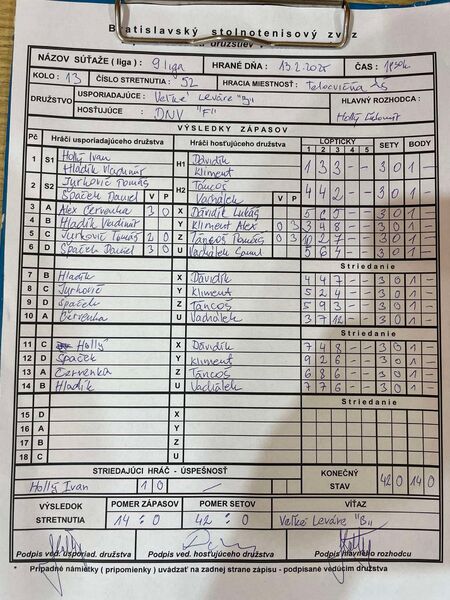 Bratislavský stolnotenisový zväz
NÁZOV SÚŤAŽE (liga) : 9 liga HRANÉ DŇA : 13.2.2025 ČAS :
KOLO : 13 ČÍSLO STRETNUTIA : 52 HRACIA MIESTNOSŤ : Telocvičňa ZŠ
DRUŽSTVO USPORIADAJÚCE : Veľké Leváre "B" HLAVNÝ ROZHODCA :
HOSŤUJÚCE : DNV "F" Hollý
VÝSLEDKY ZÁPASOV
Pč Hráči usporiadajúceho družstva Hráči hosťujúceho družstva LOPTIČKY SETY BODY
1 2 3 4 5
1 S1 Hollý Ivan H1 Dávidík 1 3 3 - - 3 0 1 -
Hladík Vladimír Kliment
2 S2 Jurkovič Tomáš H2 Táncoš 4 4 2 - - 3 0 1 -
Špaček Daniel V P Vachálek V P
3 A Alex Červenka 3 0 X Dávidík Lukáš 5 - - 3 0 1 -
4 B Hladík Vladimír Y Kliment Alex 0 3 3 4 8 - - 3 0 1 -
5 C Jurkovič Tomáš 2 0 Z Táncoš Tomáš 0 3 10 2 7 - - 3 0 1 -
6 D Špaček Daniel 3 0 U Vachálek 5 6 4 - - 3 0 1 -
Striedanie
7 B Hladík X Dávidík 4 4 7 - - 3 0 1 -
8 C Jurkovič Y Kliment 5 2 4 - - 3 0 1 -
9 D Špaček Z Táncoš 5 9 3 - - 3 0 1 -
10 A Červenka U Vachálek 3 7 12 - - 3 0 1 -
Striedanie
11 C Hollý X Dávidík 7 4 8 - - 3 0 1 -
12 D Špaček Y Kliment 9 2 6 - - 3 0 1 -
13 A Červenka Z Táncoš 6 8 6 - - 3 0 1 -
14 B Hladík U Vachálek 7 7 6 - - 3 0 1 -
Striedanie
15 D X
16 A Y
17 B Z
18 C U
STRIEDAJÚCI HRÁČ - ÚSPEŠNOSŤ KONEČNÝ STAV 42 0 14 0
Hollý Ivan 1 0
VÝSLEDOK STRETNUTIA POMER ZÁPASOV POMER SETOV VÍŤAZ
14 : 0 42 : 0 Veľké Leváre "B"
Podpis ved. usporiad. družstva Podpis ved. hosťujúceho družstva Podpis hlavného rozhodcu
* Prípadné námietky ( pripomienky ) uvádzať na zadnej strane zápisu - podpísané vedúcim družstva